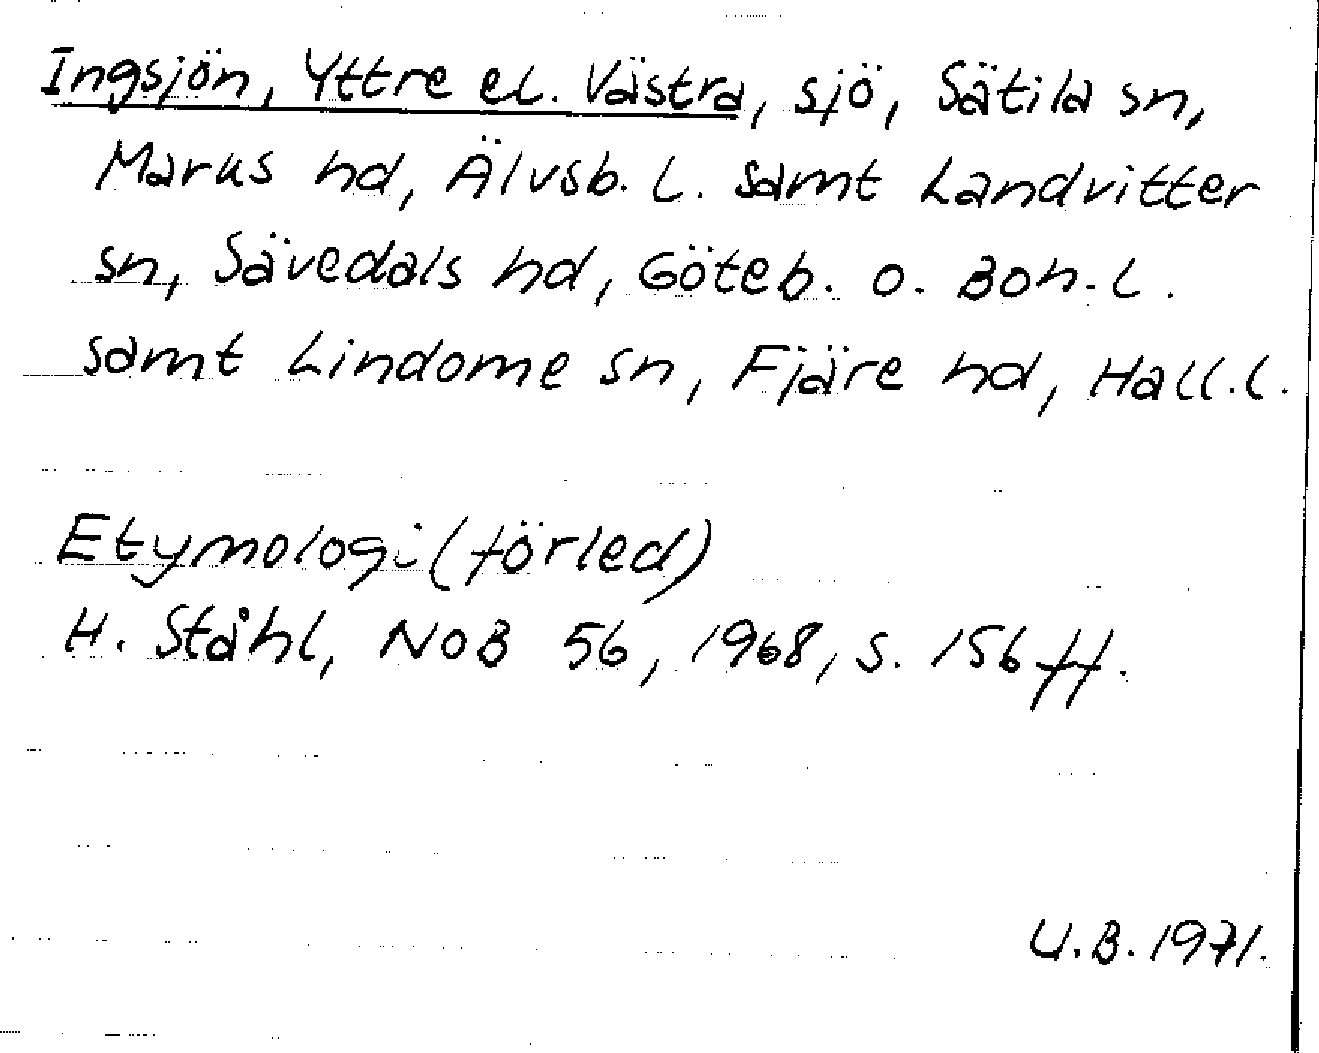 Ingsjön, Yttre el. Västra, sjö, Sätila sn,
Marks hd, Älvsb. l. samt Landvitter
sn, Sävedals hd, Göteb. o. Boh. l.
samt Lindome sn, Fjäre hd, Hall. l.
Etymologi (förled)
H. Ståhl, NoB 56, 1968, s. 156 ff.
U.B. 1971.